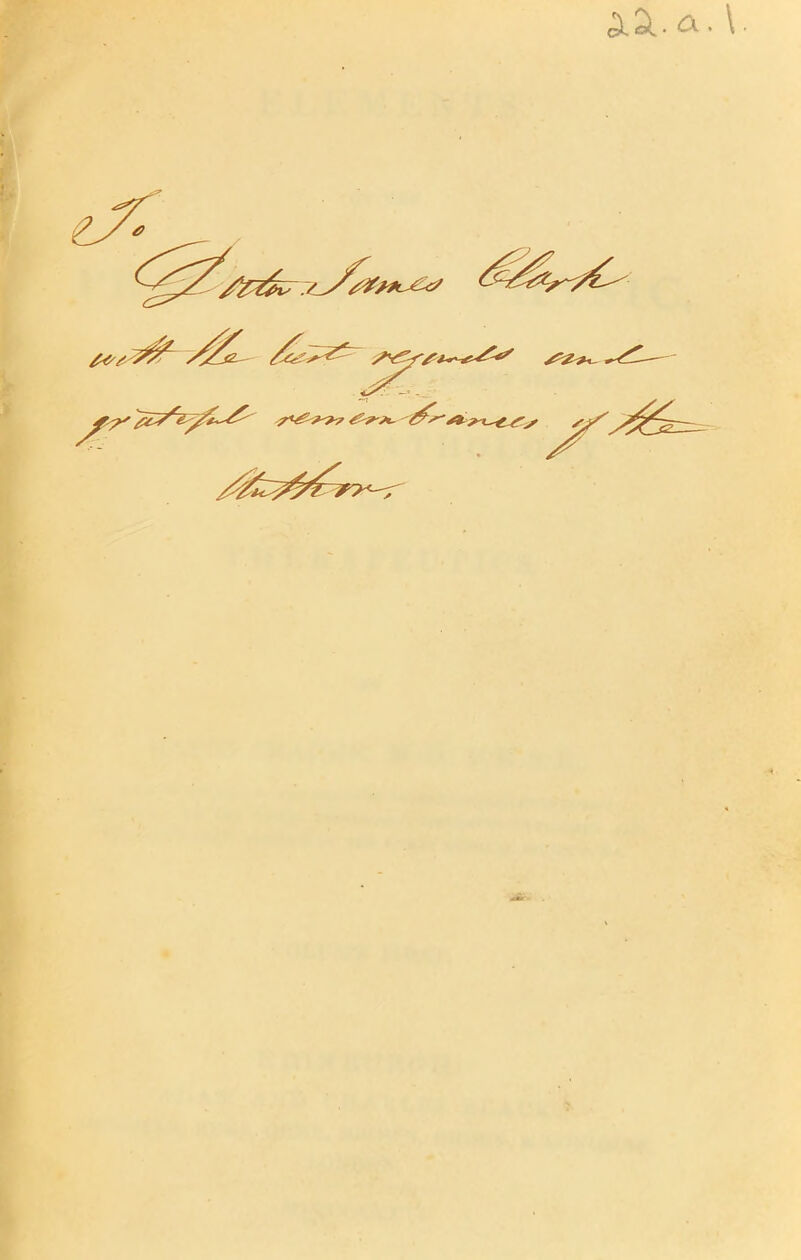 22.a.1.
To
Doctor James Clark
with the best regards and
grateful remembrances of the
Author.
ELEMENTS
THERAPEUTICS
EDINBURGH